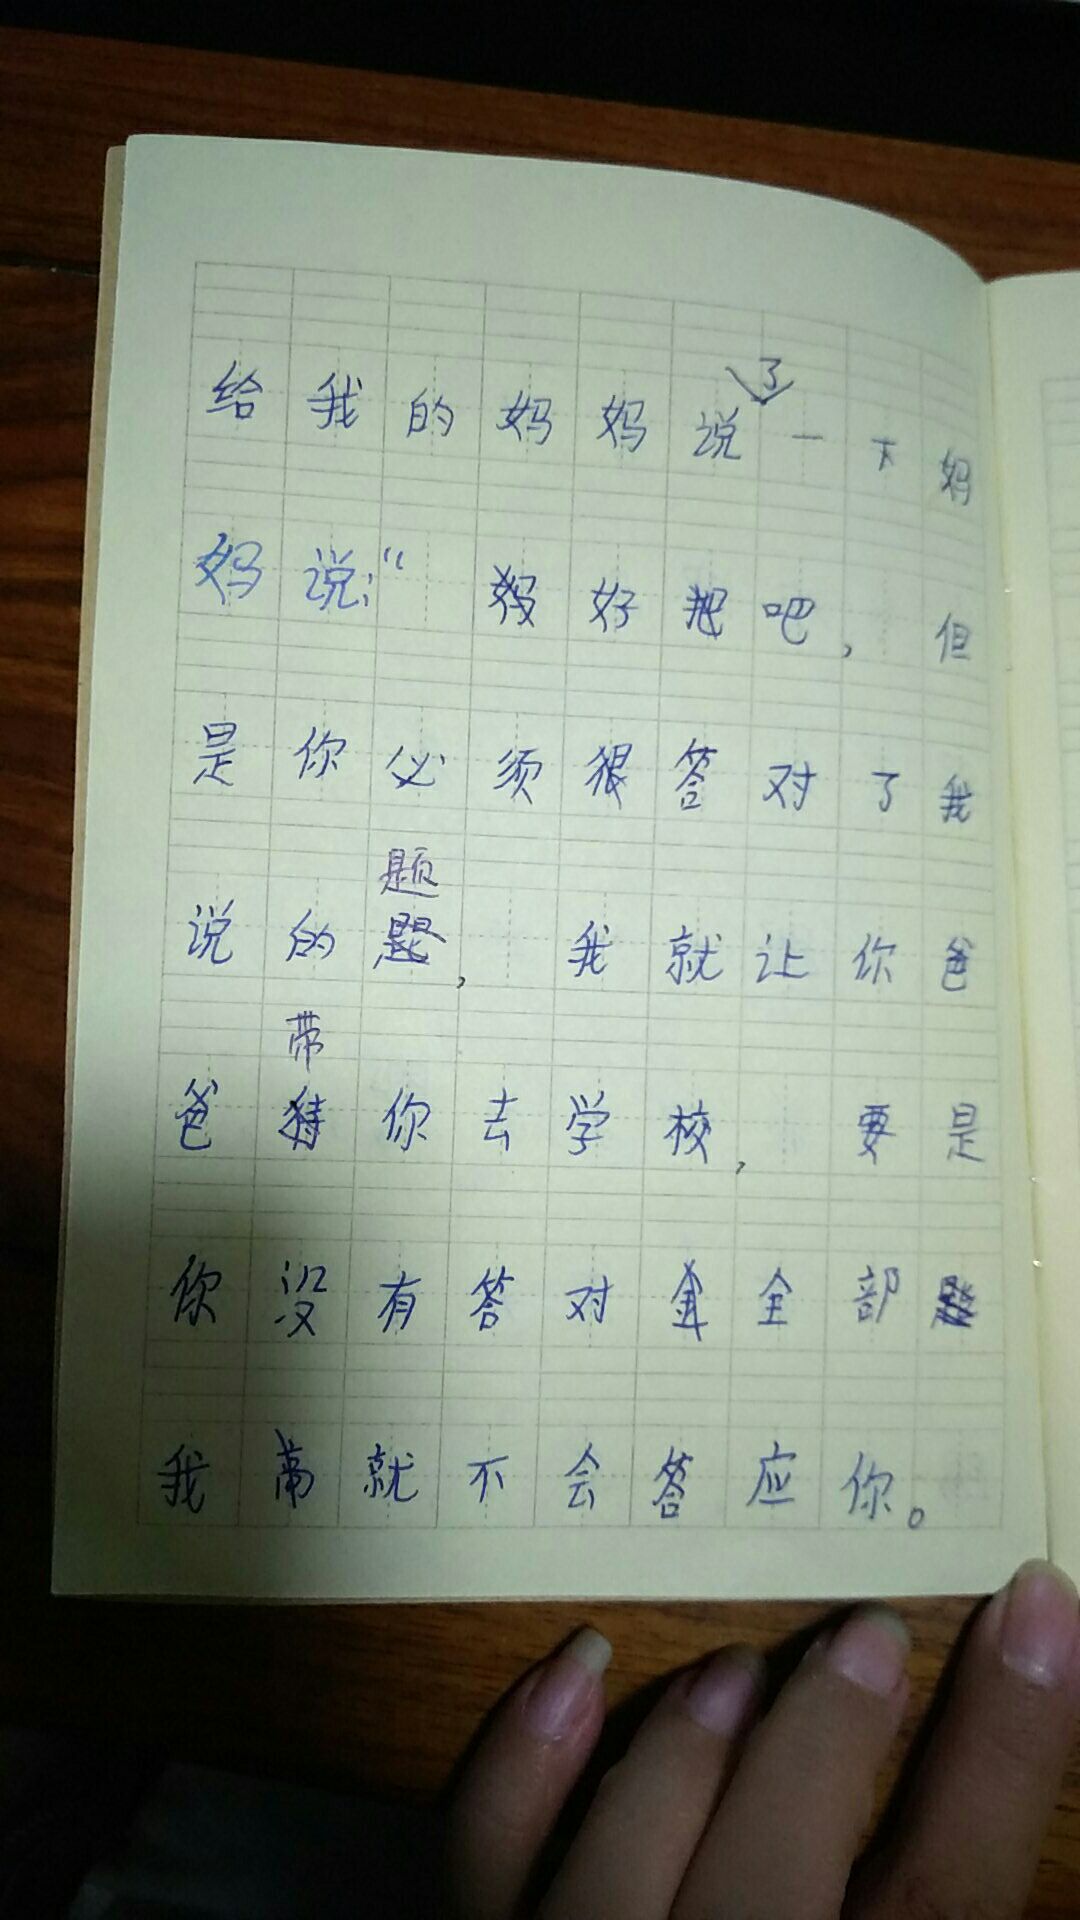 给我的妈妈说了一下妈
妈说：“好吧，但
是你必须答对了我
说的题，我就让你爸
爸带你去学校，要是
你没有答对全部
我就不会答应你。